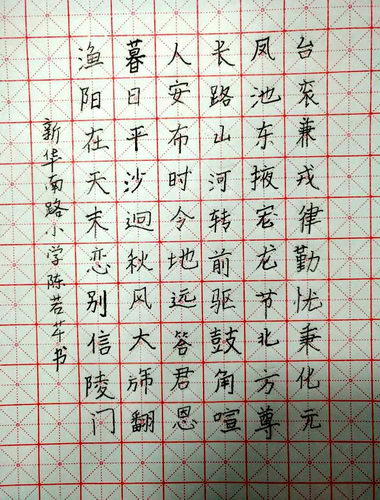 台衮兼戎律勤忧秉化元
凤池东掖宠龙节北方尊
长路山河转前驱鼓角喧
人安布时令地远答君恩
暮日平沙迥秋风大旆翻
渔阳在天末恋别信陵门
新华南路小学陈若芊书